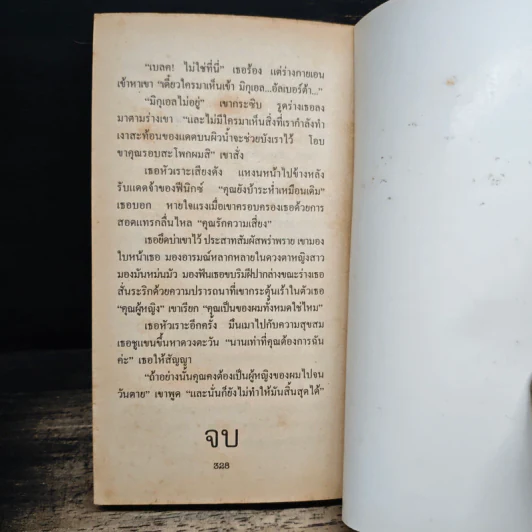 “เบลค! ไม่ใช่ที่นี่” เธอร้อง แต่ร่างกายเอน
เข้าหาเขา “เดี๋ยวใครมาเห็นเข้า มิกูเอล...อัลเบอร์ต้า...”
“มิกูเอลไม่อยู่” เขากระซิบ รูดร่างเธอลง
มาตามร่างเขา “และไม่มีใครมาเห็นสิ่งที่เรากำลังทำ
เงาสะท้อนของแดดบนผิวน้ำจะช่วยบังเราไว้ โอบ
ขาคุณรอบสะโพกผมสิ” เขาสั่ง
เธอหัวเราะเสียงดัง แหงนหน้าไปข้างหลัง
รับแดดจ้าของฟีนิกซ์ “คุณยังบ้าระห่ำเหมือนเดิม”
เธอบอก หายใจแรงเมื่อเขาครอบครองเธอด้วยการ
สอดแทรกลื่นไหล “คุณรักความเสี่ยง”
เธอยึดบ่าเขาไว้ ประสาทสัมผัสพร่าพราย เขามอง
ใบหน้าเธอ มองอารมณ์หลากหลายในดวงตาหญิงสาว
มองมันหม่นมัว มองฟันเธอขบริมฝีปากล่างขณะร่างเธอ
สั่นระริกด้วยความปรารถนาที่เขากระตุ้นเร้าในตัวเธอ
“คุณผู้หญิง” เขาเรียก “คุณเป็นของผมทั้งหมดใช่ไหม”
เธอหัวเราะอีกครั้ง มึนเมาไปกับความสุขสม
เธอชูแขนขึ้นหาดวงตะวัน “นานเท่าที่คุณต้องการฉัน
ค่ะ” เธอให้สัญญา
“ถ้าอย่างนั้นคุณคงต้องเป็นผู้หญิงของผมไปจน
วันตาย” เขาพูด “และนั่นก็ยังไม่ทำให้มันสิ้นสุดได้”
จบ
328